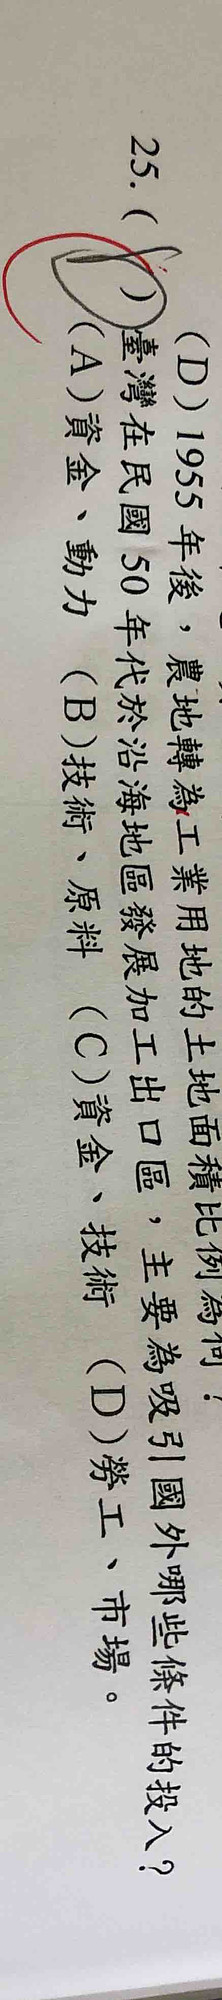 (D)1955年後，農地轉為工業用地的土地面積比例為何？
25.( )臺灣在民國50年代於沿海地區發展加工出口區，主要為吸引國外哪些條件的投入？
(A)資金、動力 (B)技術、原料 (C)資金、技術 (D)勞工、市場。